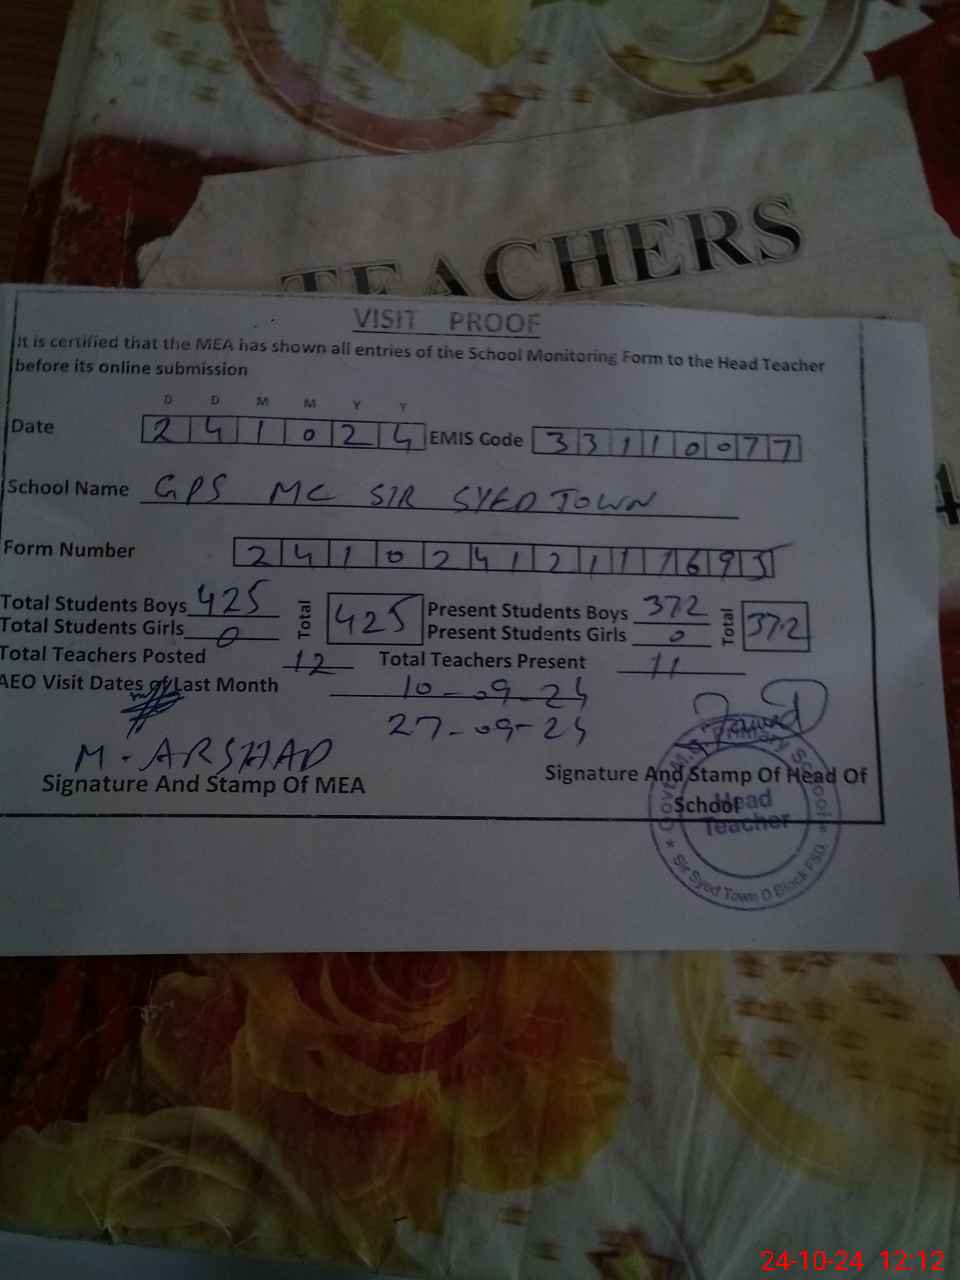 TEACHERS
VISIT PROOF
It is certified that the MEA has shown all entries of the School Monitoring Form to the Head Teacher
before its online submission
D D M M Y Y
Date 2 4 1 0 2 4 EMIS Code 3 3 1 1 0 0 7 7
School Name GPS MC SIR SYED TOWN
Form Number 2 4 1 0 2 4 1 2 1 1 1 6 9 5
Total Students Boys 425 Total 425 Present Students Boys 372 Total 372
Total Students Girls 0 Present Students Girls 0
Total Teachers Posted 12 Total Teachers Present 11
AEO Visit Dates of Last Month 10-09-24
27-09-24
M. ARSHAD
Signature And Stamp Of MEA
Signature And Stamp Of Head Of
School
Govt. M.C. Primary School
Head
Teacher
* Sir Syed Town D Block FSD. *
24-10-24 12:12